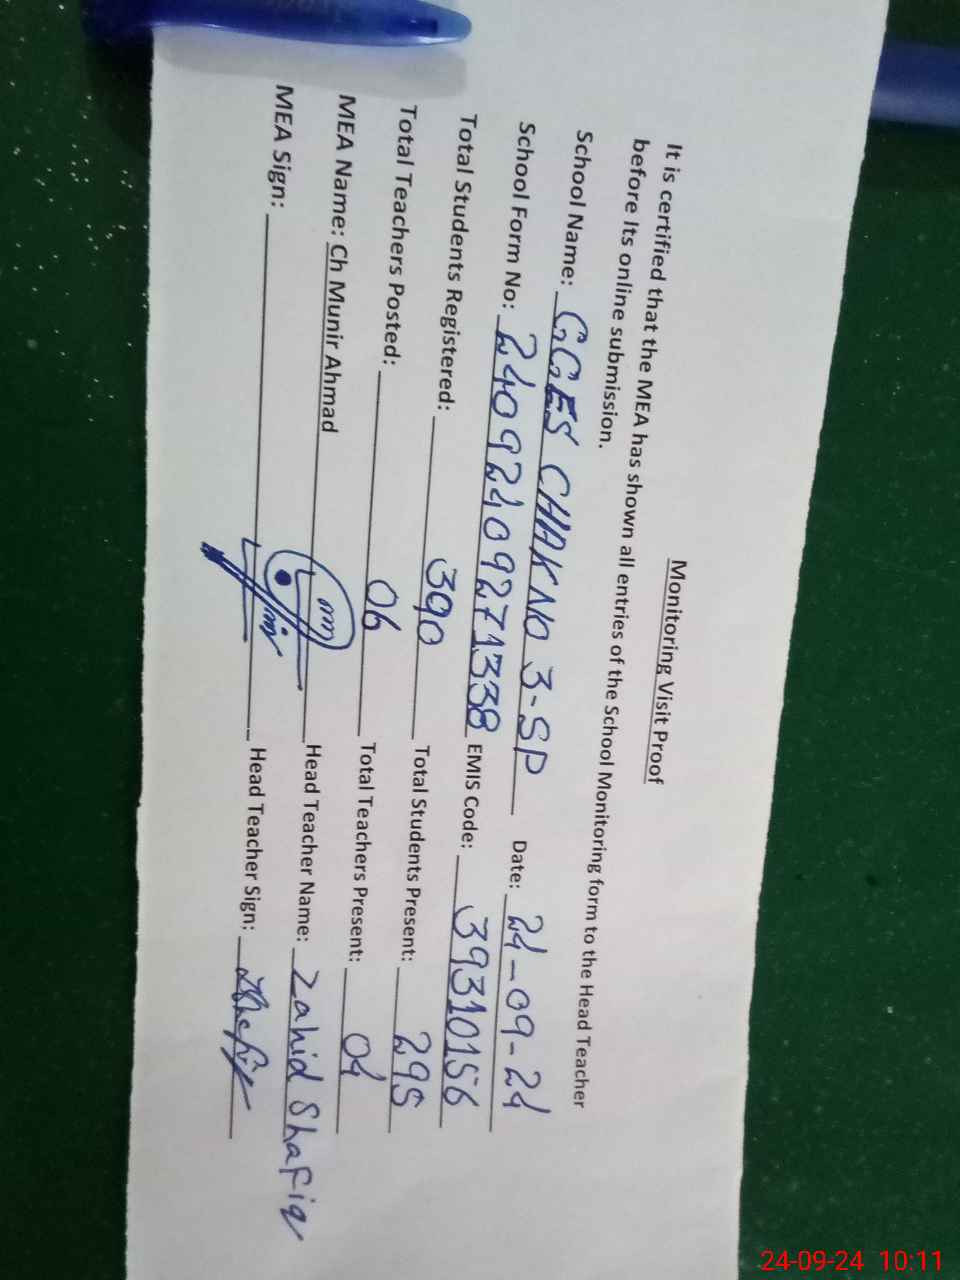 Monitoring Visit Proof
It is certified that the MEA has shown all entries of the School Monitoring form to the Head Teacher
before Its online submission.
School Name: GGES CHAK NO 3-SP Date: 24-09-24
School Form No: 24092409271338 EMIS Code: 39310156
Total Students Registered: 390 Total Students Present: 295
Total Teachers Posted: 06 Total Teachers Present: 04
MEA Name: Ch Munir Ahmad Head Teacher Name: Zahid Shafiq
MEA Sign: Head Teacher Sign: ZShafiq
24-09-24 10:11